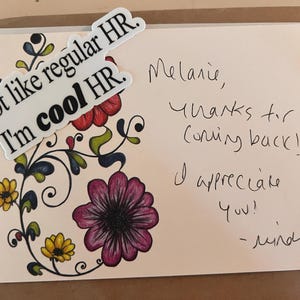 t like regular HR.
I'm cool HR.
Melanie,
thanks for
coming back!
I appreciate
you!